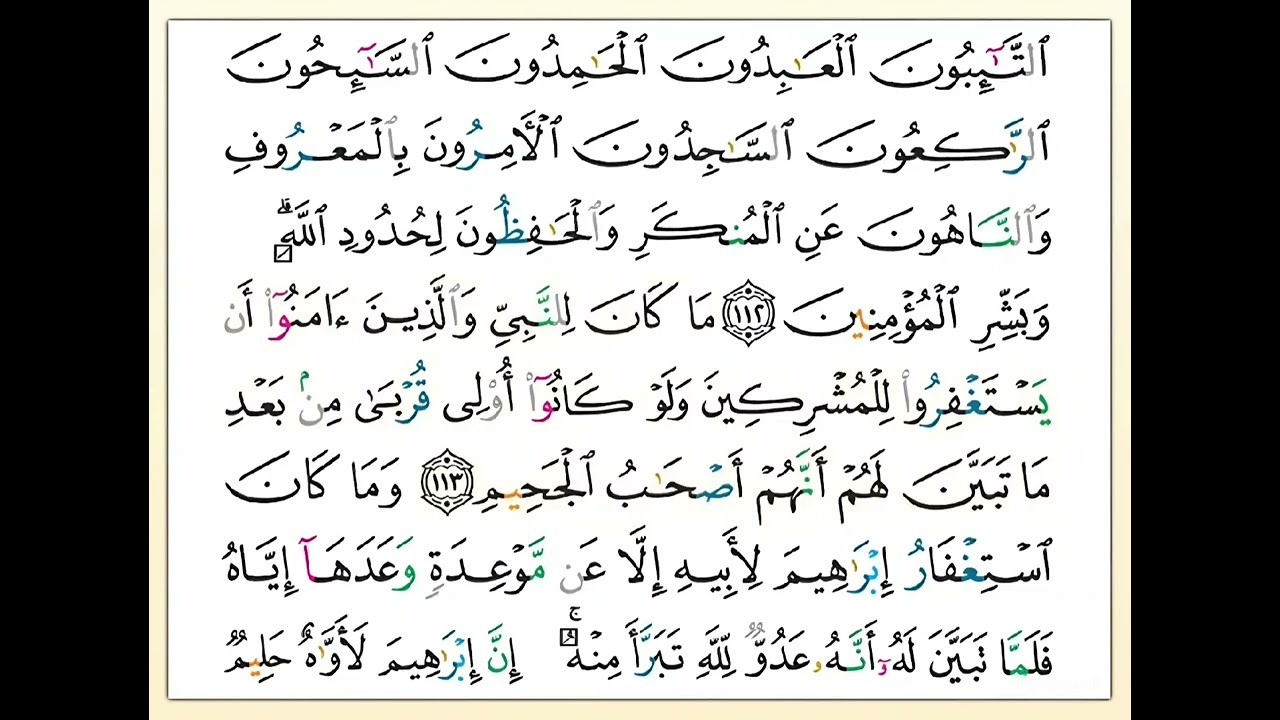 ٱلتَّٰٓئِبُونَ ٱلْعَٰبِدُونَ ٱلْحَٰمِدُونَ ٱلسَّٰٓئِحُونَ
ٱلرَّٰكِعُونَ ٱلسَّٰجِدُونَ ٱلْأَمِرُونَ بِٱلْمَعْرُوفِ
وَٱلنَّاهُونَ عَنِ ٱلْمُنكَرِ وَٱلْحَٰفِظُونَ لِحُدُودِ ٱللَّهِ ۗ
وَبَشِّرِ ٱلْمُؤْمِنِينَ ١١٢ مَا كَانَ لِلنَّبِيِّ وَٱلَّذِينَ ءَامَنُوٓا۟ أَن
يَسْتَغْفِرُوا۟ لِلْمُشْرِكِينَ وَلَوْ كَانُوٓا۟ أُو۟لِى قُرْبَىٰ مِنۢ بَعْدِ
مَا تَبَيَّنَ لَهُمْ أَنَّهُمْ أَصْحَٰبُ ٱلْجَحِيمِ ١١٣ وَمَا كَانَ
ٱسْتِغْفَارُ إِبْرَٰهِيمَ لِأَبِيهِ إِلَّا عَن مَّوْعِدَةٍ وَعَدَهَآ إِيَّاهُ
فَلَمَّا تَبَيَّنَ لَهُۥٓ أَنَّهُۥ عَدُوٌّ لِّلَّهِ تَبَرَّأَ مِنْهُ ۚ إِنَّ إِبْرَٰهِيمَ لَأَوَّٰهٌ حَلِيمٌ